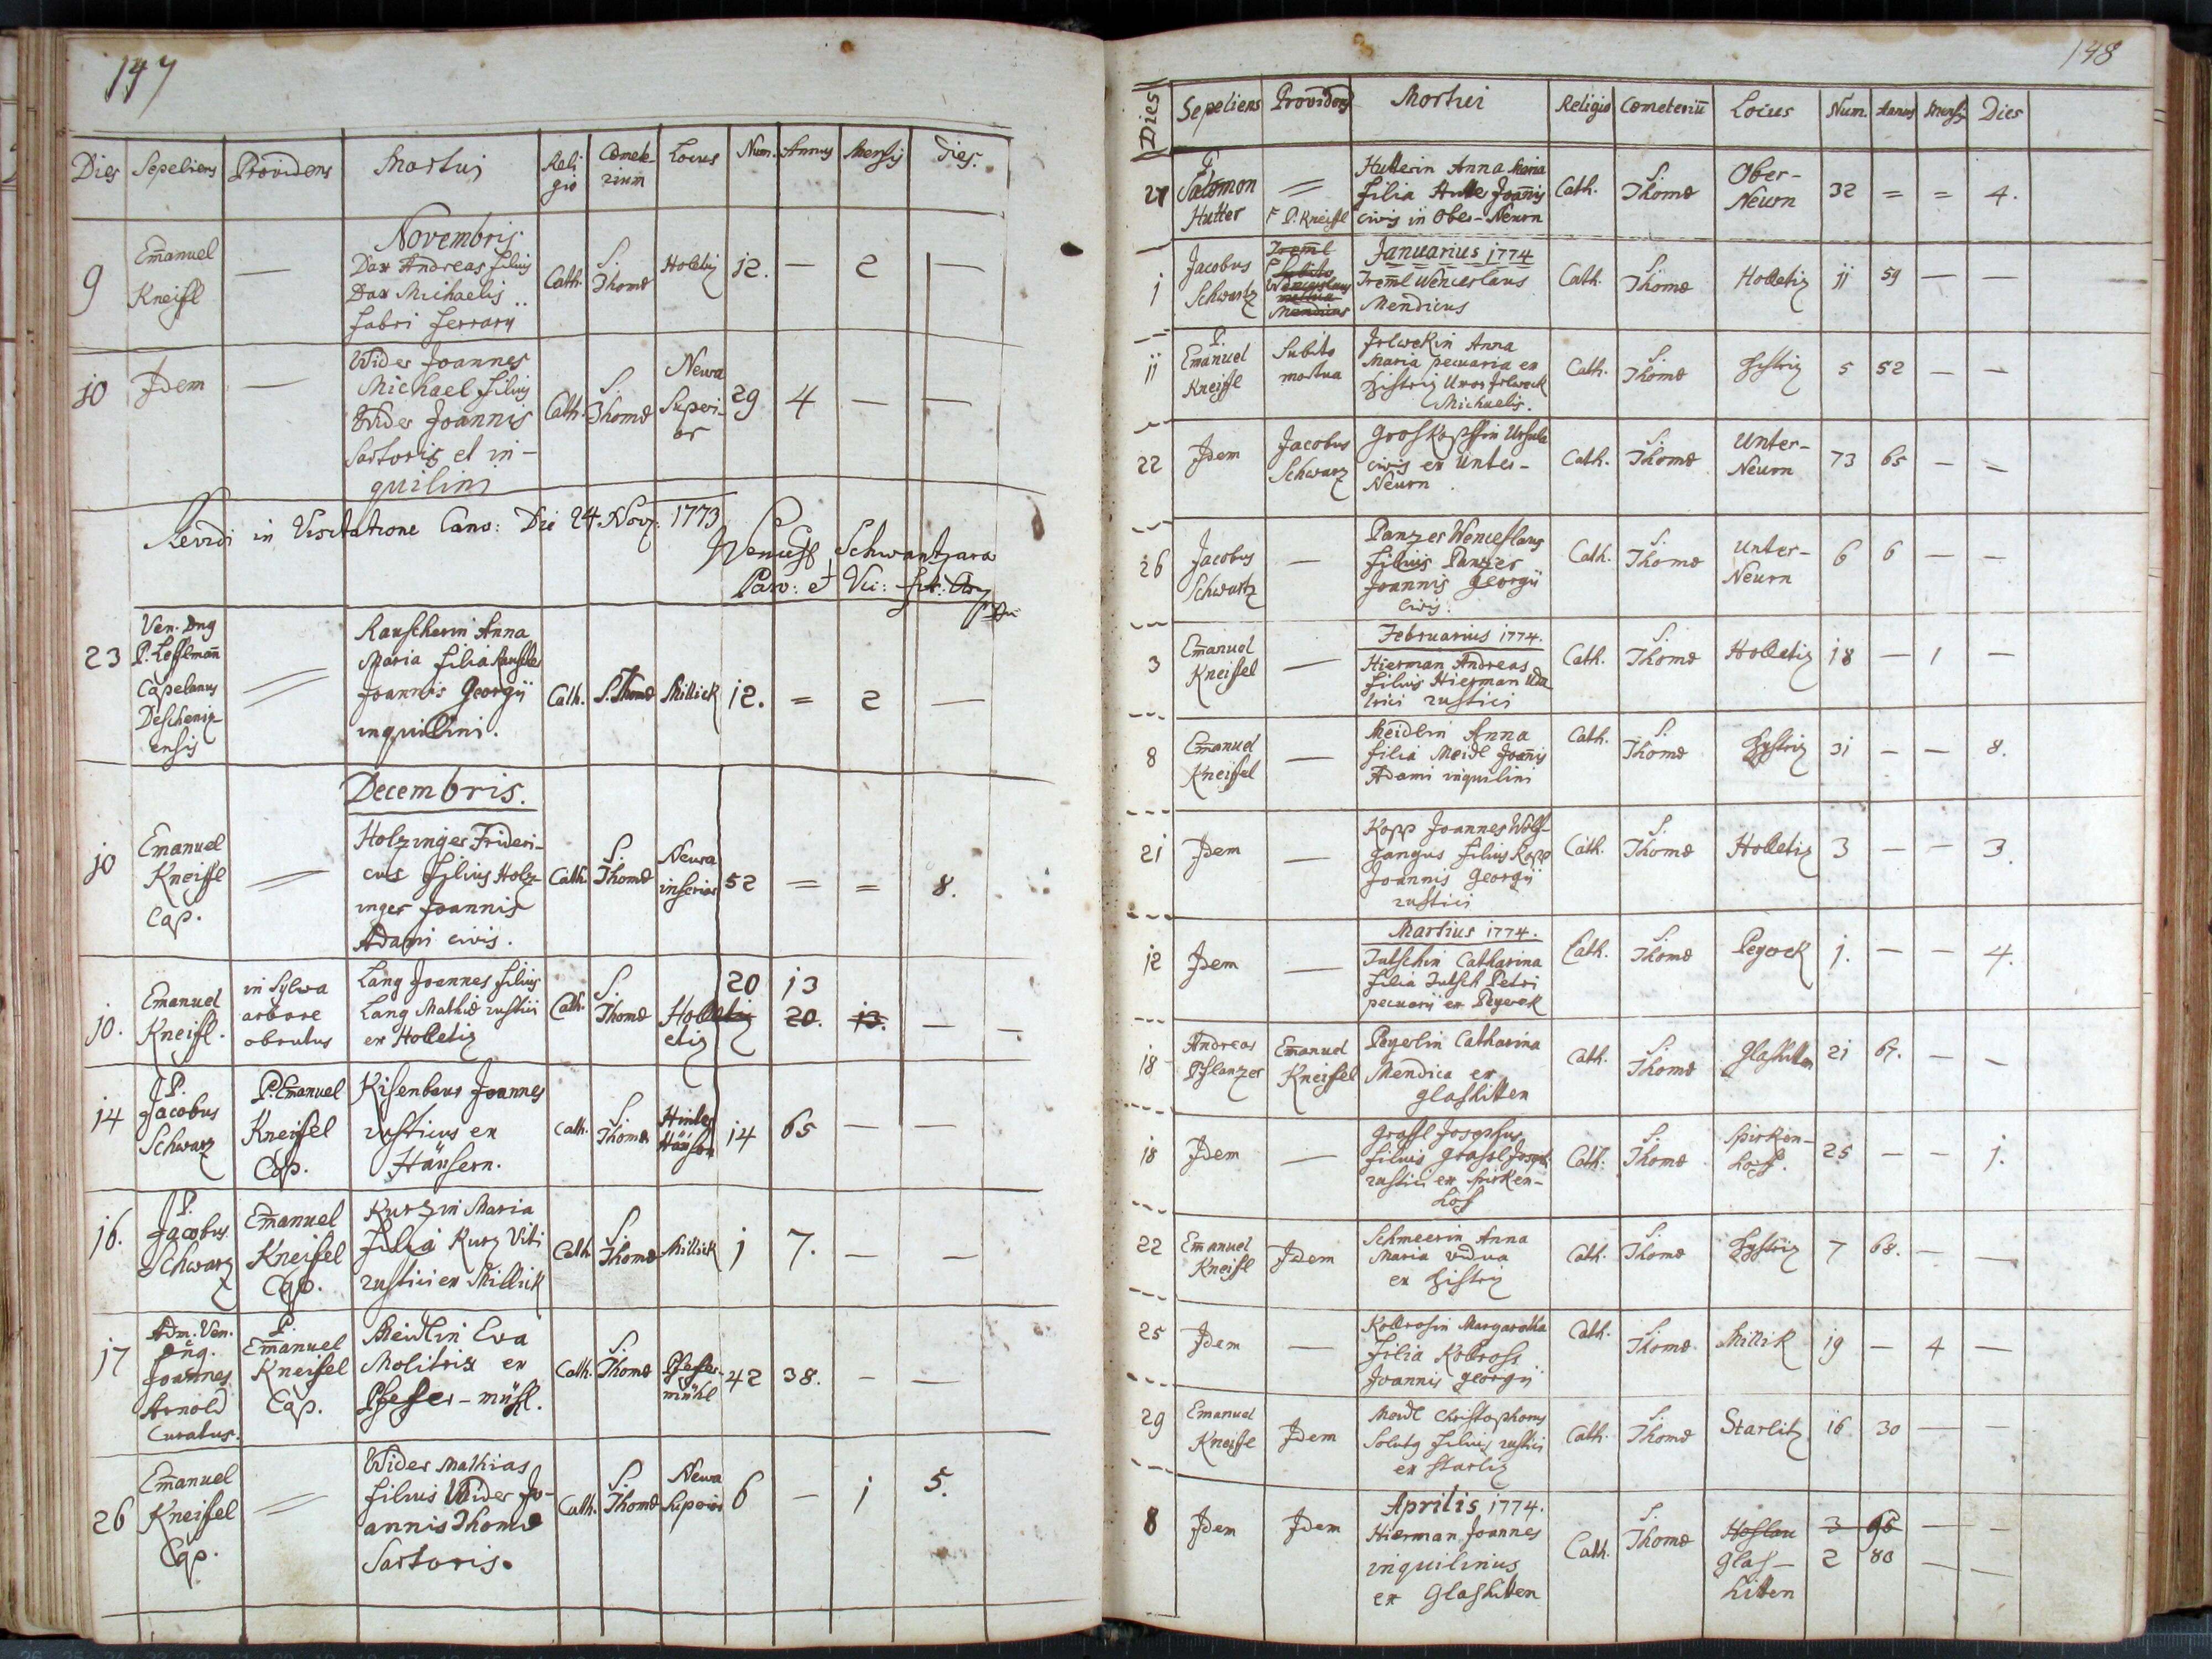 147
Dies Sepeliens Providens Mortui Reli gio Cæmete- rium Locus Num. Annus Mensis Dies.
Novembris.
9 Emanuel Kneissl — Dax Andreas filius Dax Michaelis fabri ferrarij Cath. S. Thomæ Holletiz 12. — 2 —
10 Idem — Wider Joannes Michael filius Wider Joannis Sartoris et in- quilini Cath. S. Thomæ Neura Superi- or 29 4 — —
Revidi in Visitatione Cano: Die 24 Nov: 1773
Schwantzara
Paro: et Vic:
23 Ven. Dng P. Leffelmañ Capelanus Descheniz- ensis = Rauscherin Anna Maria filia Rauscher Joannis Georgij inquillini. Cath. S. Thomæ Millick 12. = 2 —
Decembris.
10 Emanuel Kneissl Cap. = Holzinger Frideri- cus filius Holz- inger Joannis Adami civis. Cath. S. Thomæ Neura inferior 52 = = 8.
10. Emanuel Kneisl. in Sylva arbore obrutus Lang Joannes filius Lang Mathiæ rustici ex Holletiz Cath. S. Thomæ Holletiz etiz 20 13 20. 13. — —
14 P. Jacobus Schwarz P. Emanuel Kneissel Cap. Kisenbaur Joannes rusticus ex Häusern. Cath. S. Thomæ Hinter Häusern 14 65 — —
16. P. Jacobus Schwarz Emanuel Kneissel Cap. Kurzin Maria filia Kurz Viti rustici ex Millick Cath. S. Thomæ Millick 1 7. — —
17 Adm. Ven. Dng. Joannes Arnold Curatus. P. Emanuel Kneissel Cap. Meidlin Eva Molitrix ex Pfeffer-mühl. Cath. S. Thomæ Pfeffer- mühl 42 38. — —
26 Emanuel Kneissel Cap. = Wider Mathias filius Wider Jo- annis Thomæ Sartoris. Cath. S. Thomæ Neura Superior 6 — 1 5.
148
Dies Sepeliens Providens Mortui Religio Cœmeteriū Locus Num. Annus Mensis Dies
27 P. Salomon Hutter = P. Kneissl Hutterin Anna Maria filia Hutter Joañis civis in Ober-Neurn Cath. S. Thomæ Ober- Neurn 32 = = 4.
Januarius 1774
1 Jacobus Schwartz Treml Subito Wenceslaus mortua Mendicus Treml Wenceslaus Mendicus Cath. S. Thomæ Holletiz 11 59 — —
11 P. Emanuel Kneissl Subito mortua Anna Maria pecuaria ex Zistriz Uxor Michaelis. Cath. S. Thomæ Zistriz 5 52 — —
22 Idem Jacobus Schwarz Groskopffin Ursula civis ex Unter- Neurn Cath. S. Thomæ Unter- Neurn 73 65 — —
26 Jacobus Schwartz — Panzer Wenceslaus filius Panzer Joannis Georgij civis. Cath. S. Thomæ Unter- Neurn 6 6 — —
Februarius 1774.
3 Emanuel Kneissel — Hierman Andreas filius Hierman Uda- lrici rustici Cath. S. Thomæ Holletiz 18 — 1 —
8 Emanuel Kneissel — Meidlin Anna filia Meidl Joañis Adami inquilini Cath. S. Thomæ Zystriz 31 — — 8.
21 Idem — Kopp Joannes Wolf- gangus filius Kopp Joannis Georgij rustici Cath. S. Thomæ Holletiz 3 — — 3.
Martius 1774.
12 Idem — Tutschin Catharina filia Tutsch Petri pecuarij ex Peyerek Cath. S. Thomæ Peyerek 1. — — 4.
18 Andreas Pflanzer Emanuel Kneissel Peyerlin Catharina Mendica ex Glashitten Cath. S. Thomæ Glashitten 21 67. — —
18 Idem — Grassl Josephus filius Grassl Joseph rustici ex Spirken- hof Cath. S. Thomæ Spirken- hoff. 25 — — 1.
22 Emanuel Kneissl Idem Schmeerin Anna Maria vidua ex Zistriz Cath. S. Thomæ Zystriz 7 68. — —
25 Idem — Kollrosin Margaretha filia Kollross Joannis Georgij Cath. S. Thomæ Millik 19 — 4 —
29 Emanuel Kneissl Idem Meidl Christophorus Solutg filius rustici ex Starliz Cath. S. Thomæ Starlitz 16 30 —
Aprilis 1774.
8 Idem Idem Hierman Joannes inquilinus ex Glashitten Cath. S. Thomæ Hoslau Glas- hitten 3 96 — — 2 80 — —